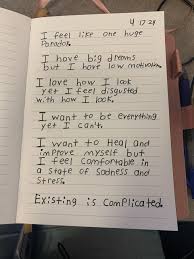 4 17 24
I feel like one huge
Paradox.
I have big dreams
but I have low motivation.
I love how I look
yet I feel disgusted
with how I look.
I want to be everything
yet I can't.
I want to Heal and
improve myself but
I feel comfortable in
a State of Sadness and
Stress.
Existing is Complicated.